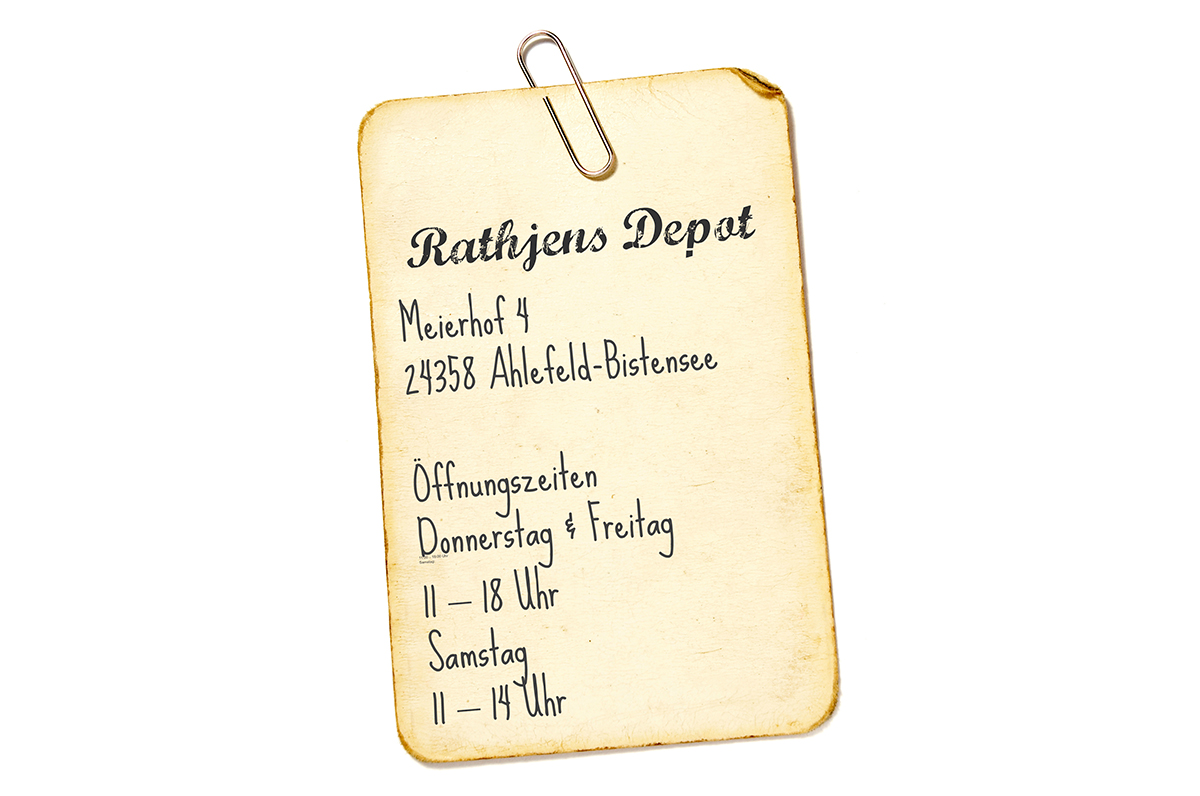 Rathjens Depot
Meierhof 4
24358 Ahlefeld-Bistensee
Öffnungszeiten
Donnerstag & Freitag
11 – 18 Uhr
Samstag
11 – 14 Uhr